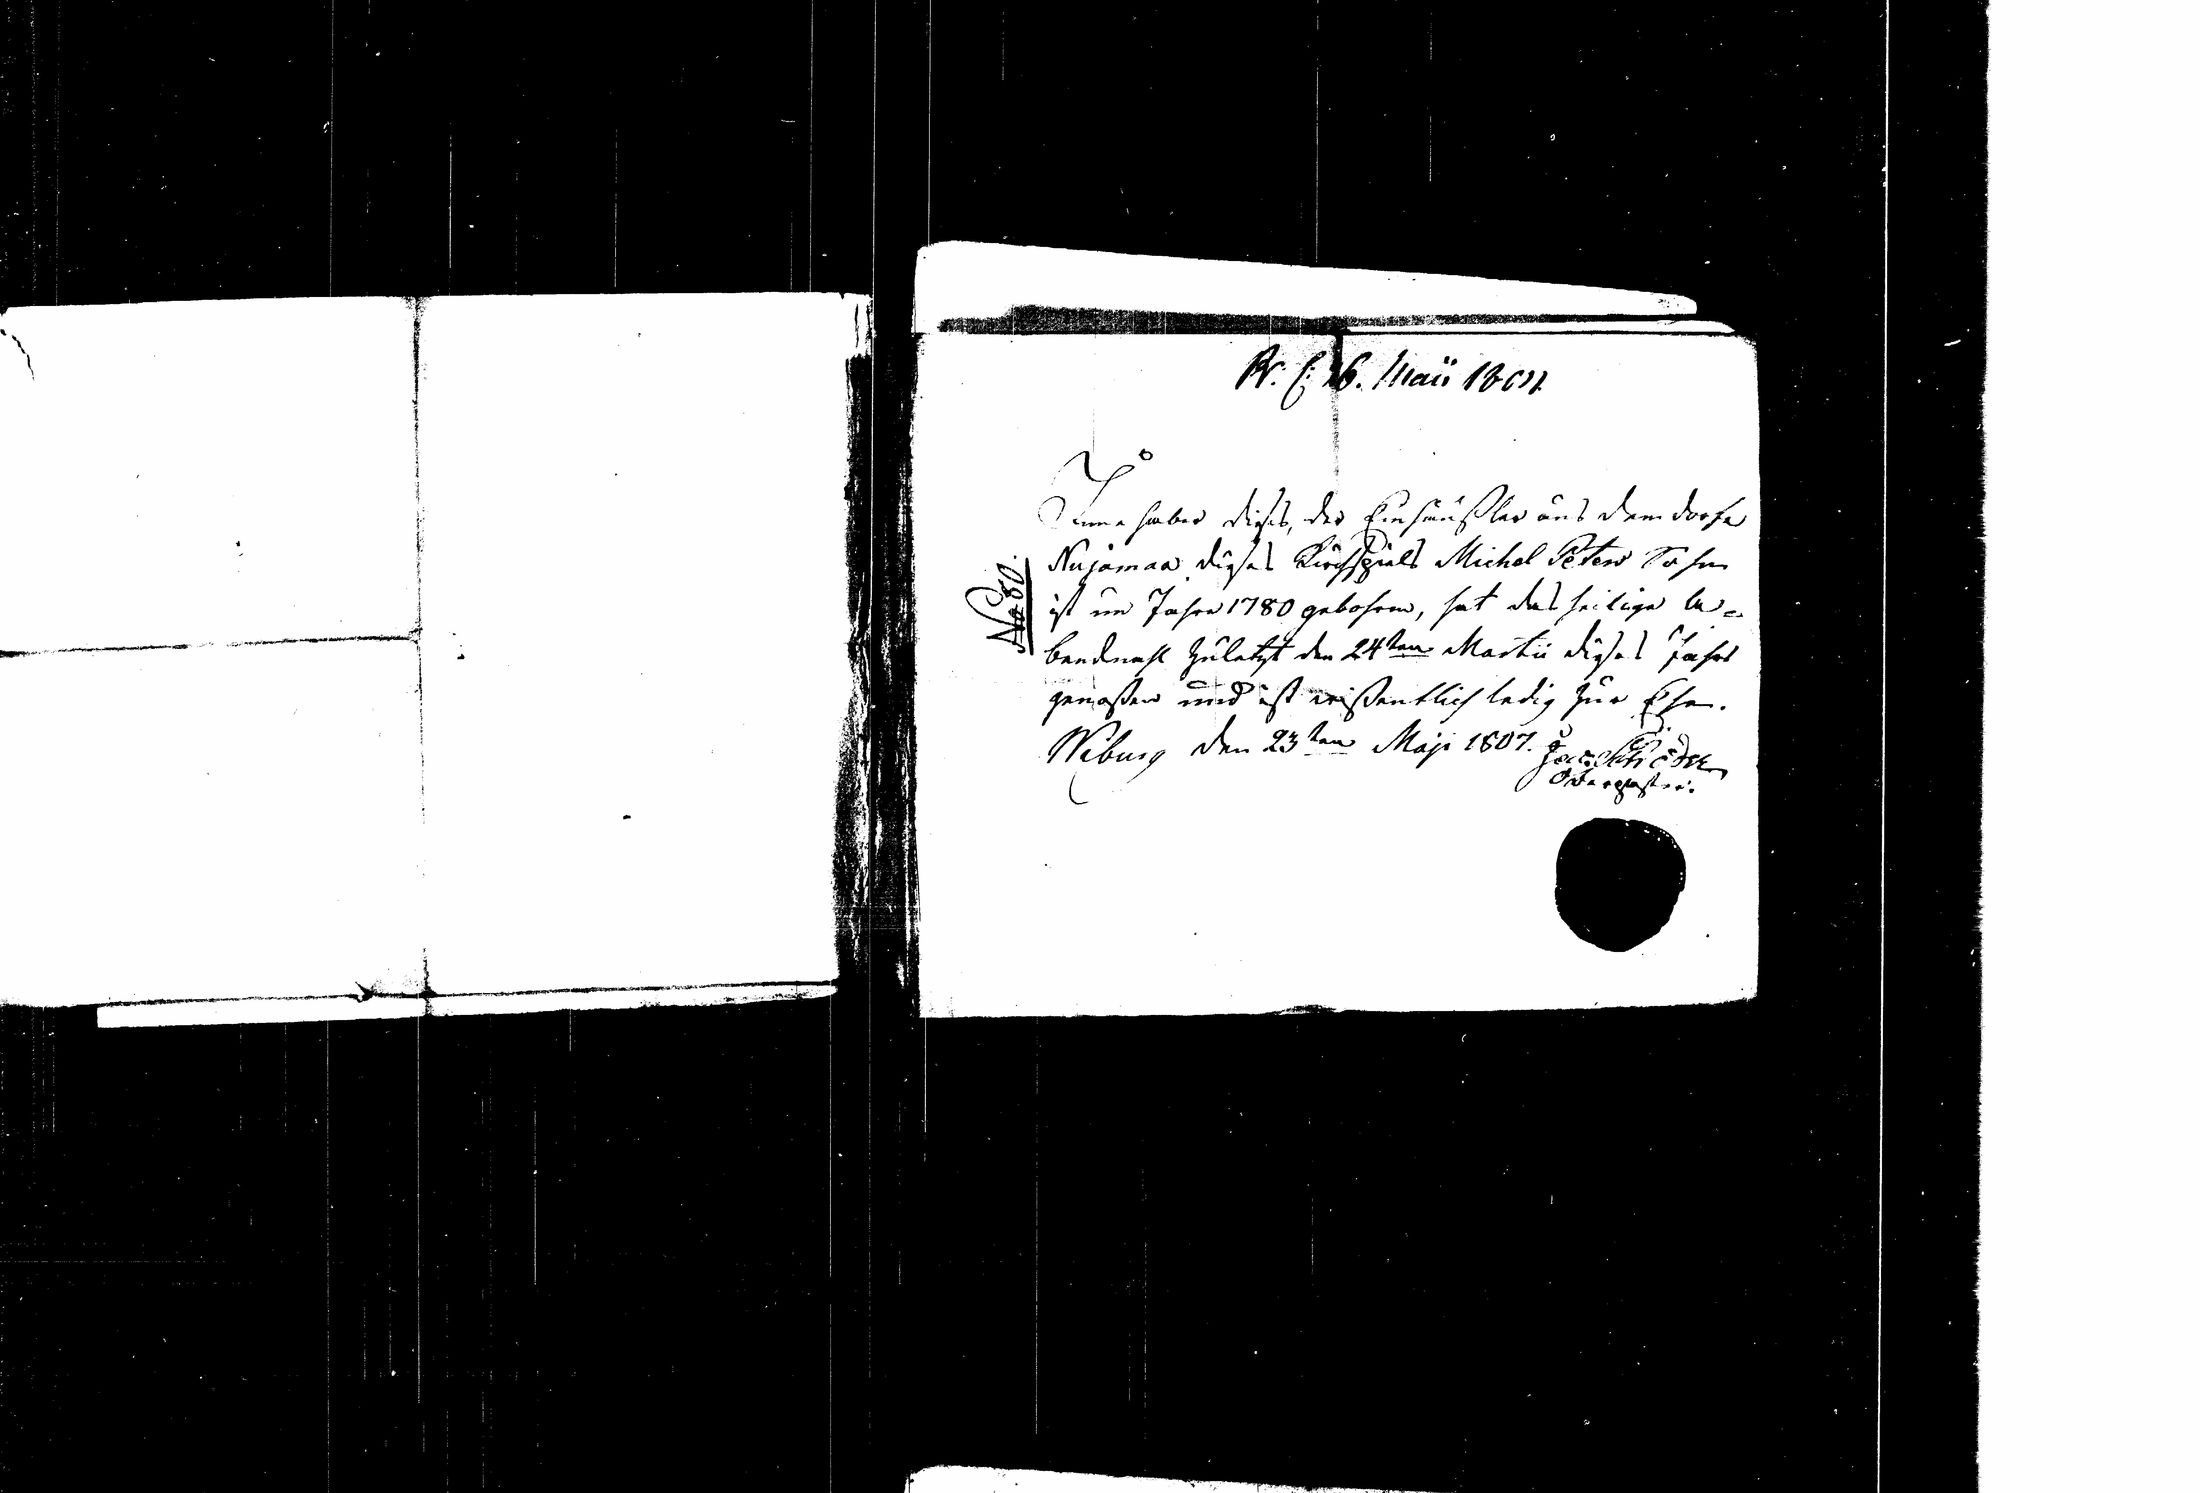 Pr. d: 26. Maii 1807.
Innehaber dieses, der Einhäußler aus dem dorfe
Nujamaa dieses Kirchspiels Michel Peters Sohn
ist im Jahre 1780 gebohren, hat das heilige A=
bendmahl zuletzt den 24ten Martii dieses Jahrs
genoßen und ist wißentlich ledig zur Ehe.
Wiburg den 23ten Maji 1807.
Schröder
Oberpastor.
No 80.